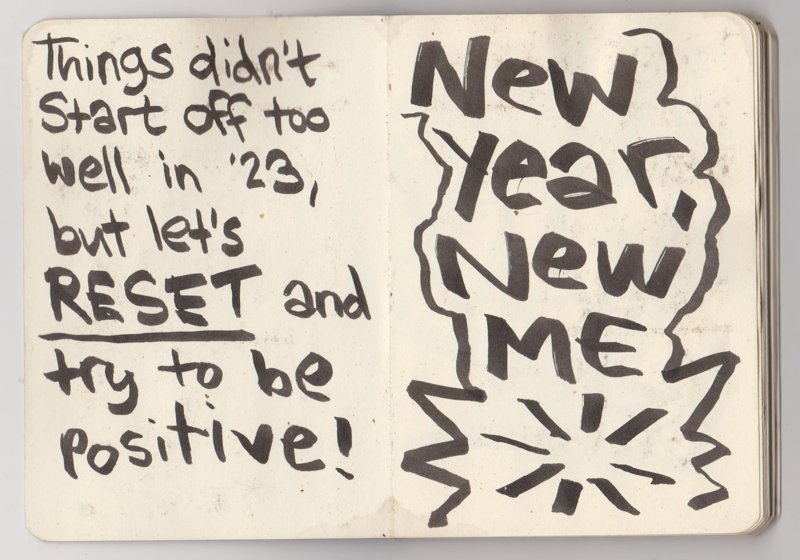 Things didn't
Start off too
well in '23,
but let's
RESET and
try to be
positive!
New
year,
New
ME